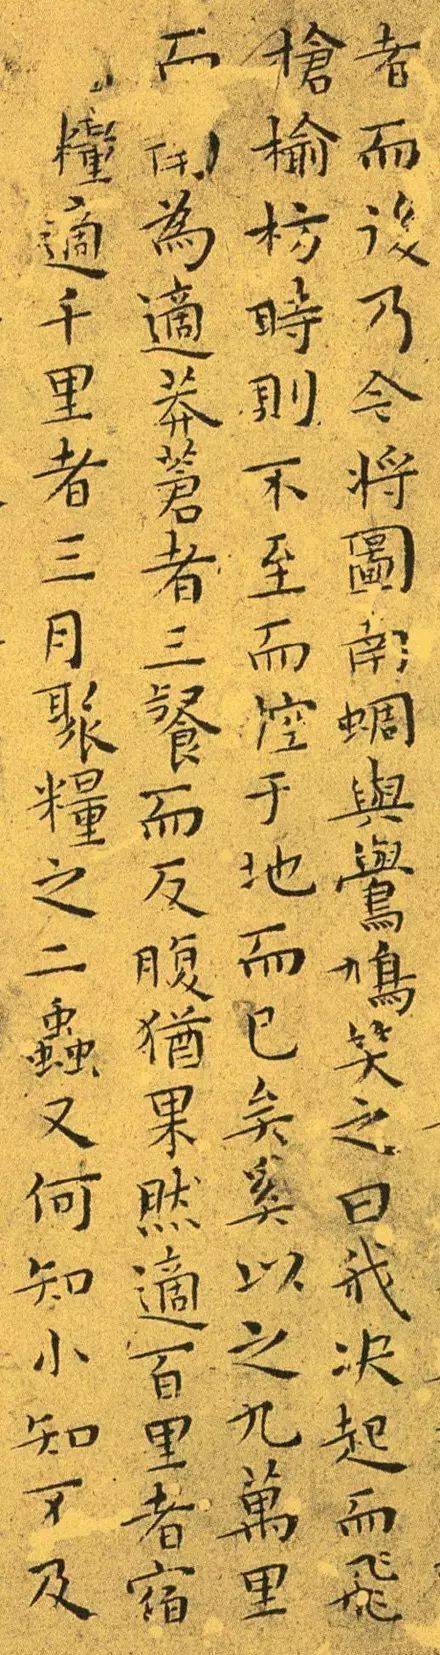 者而後乃今将圖南蜩與鷽鳩笑之曰我决起而飛
槍榆枋時則不至而控于地而已矣奚以之九萬里
而為適莽蒼者三餐而反腹猶果然適百里者宿
糧適千里者三月聚糧之二蟲又何知小知不及